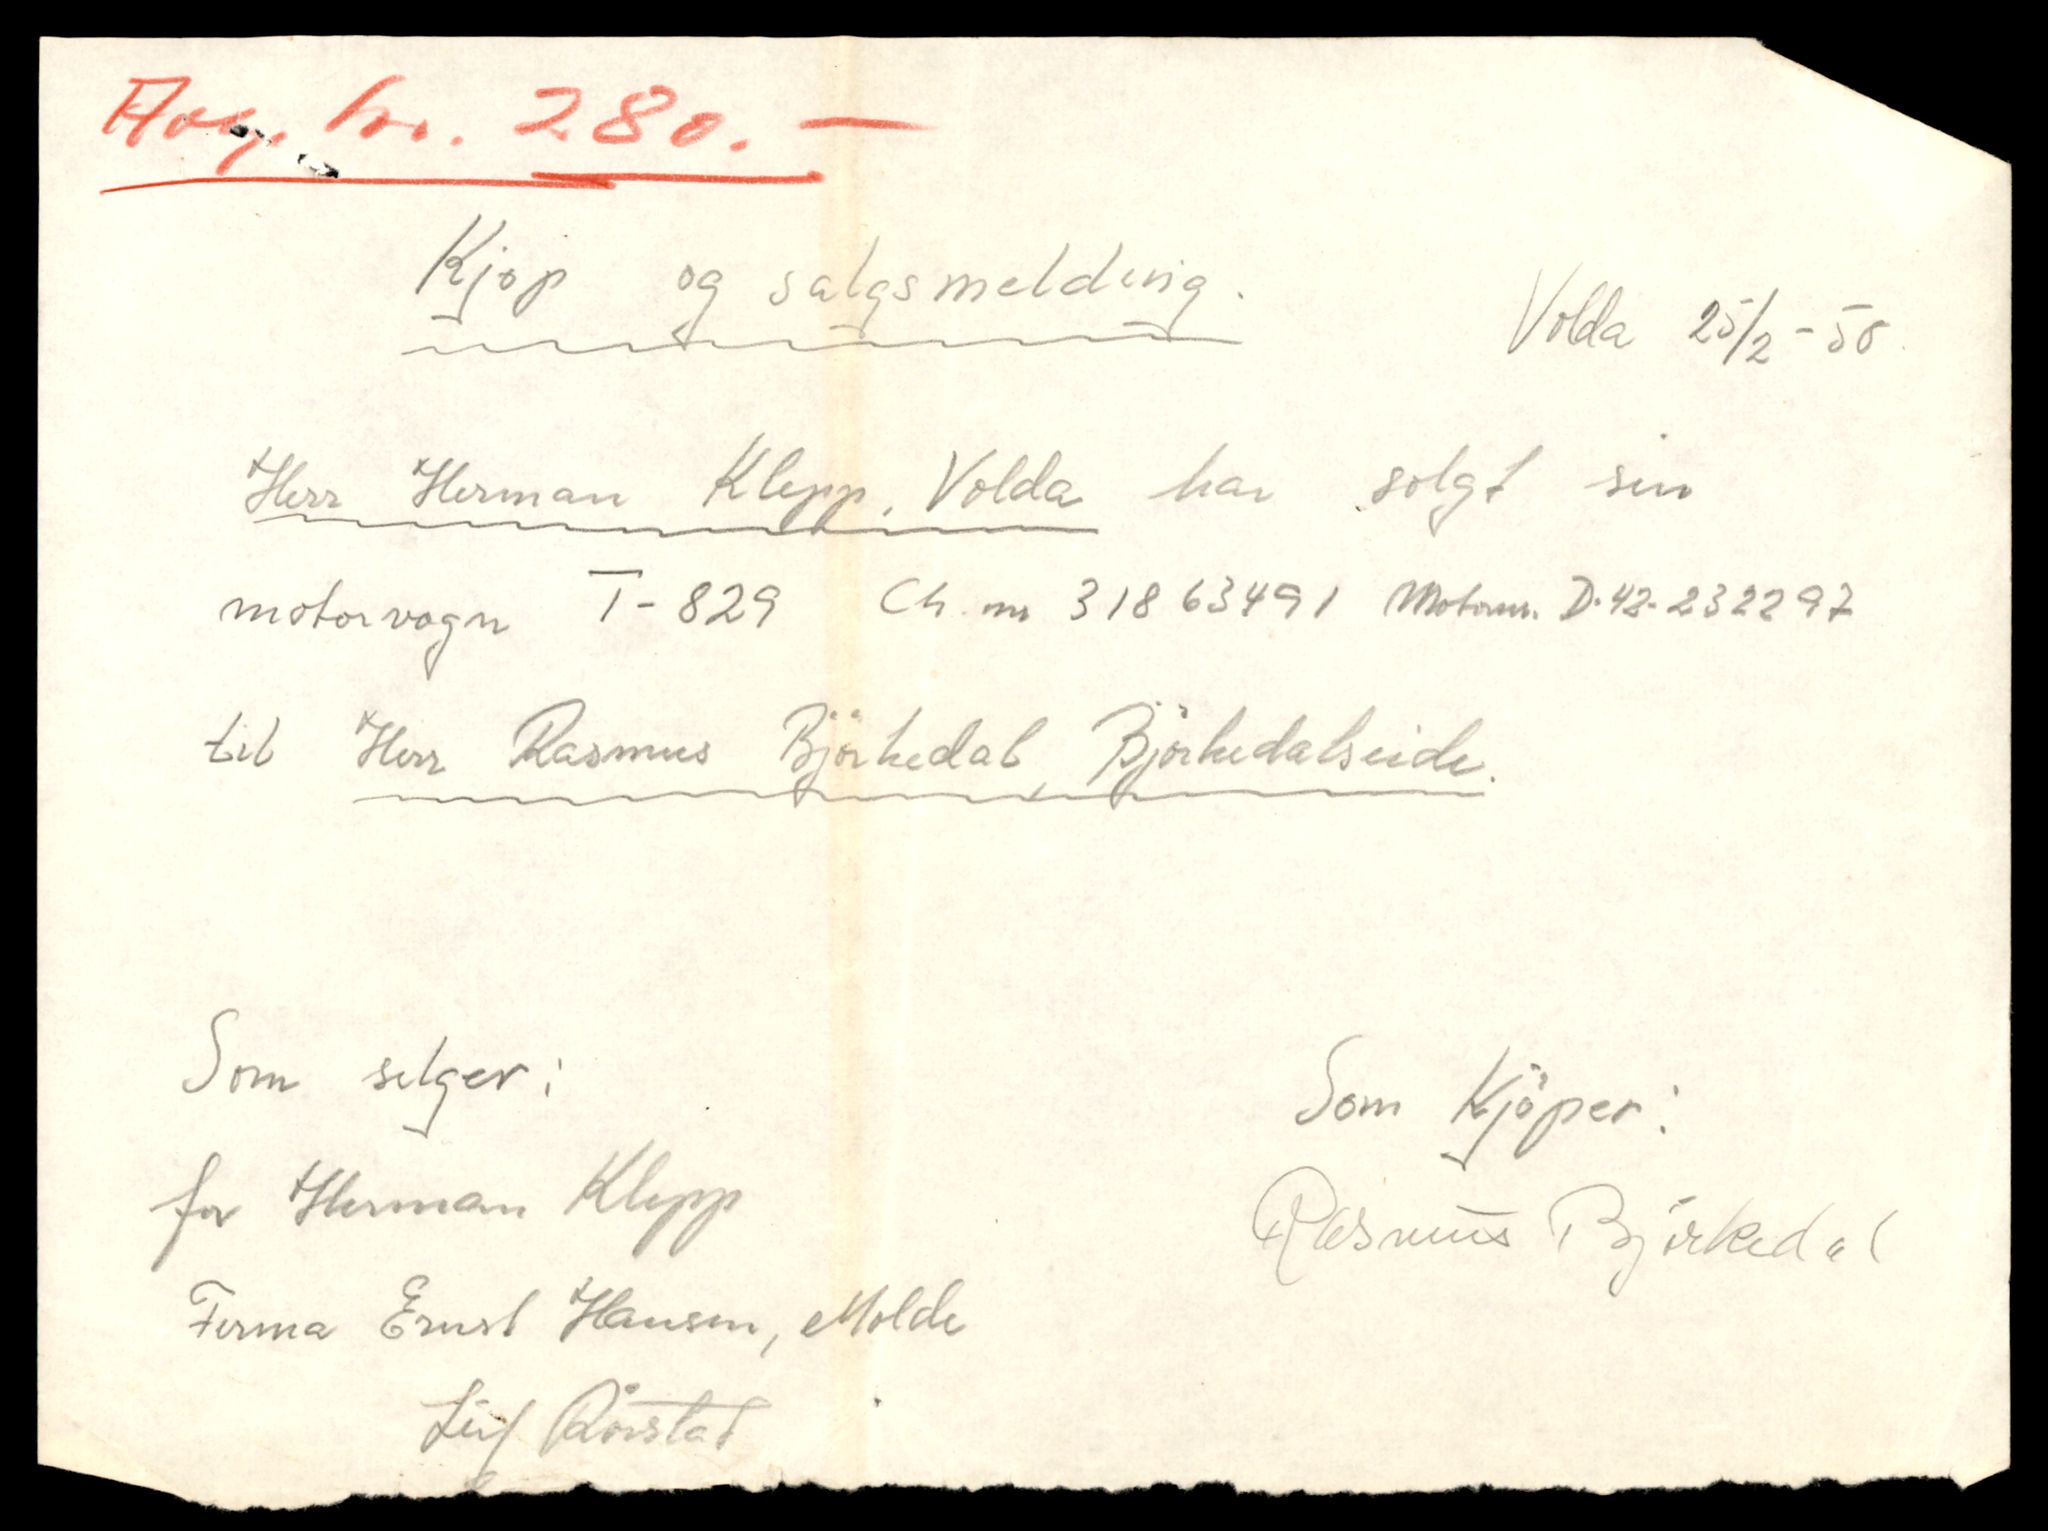 Avg. kr. 280.—
Kjöp og salgsmelding.
Volda 25/2-50.
Herr Herman Klepp, Volda har solgt sin
motorvogn T-829 Ch. nr 31863491 Motornr. D-42-232297
til Herr Rasmus Björkedal, Björkedalseide.
Som selger:
for Herman Klepp
Firma Ernst Hansen, Molde
Leif Rörstad
Som Kjöper:
Rasmus Björkedal